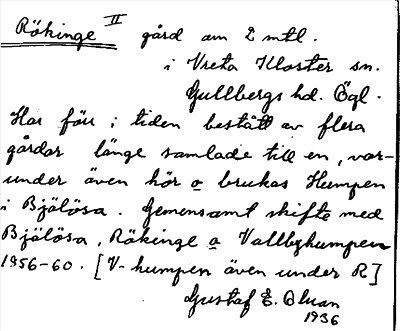 Rökinge II gård om 2 mtl.
i Vreta Kloster sn.
Gullbergs hd. Ögl.
Har förr i tiden bestått av flera
gårdar länge samlade till en, var-
under även hör o brukas Humpen
i Bjälösa. Gemensamt skifte med
Bjälösa, Rökinge o Vallbyhumpen
1956-60. [V-humpen även under R]
Gustaf E.
1936